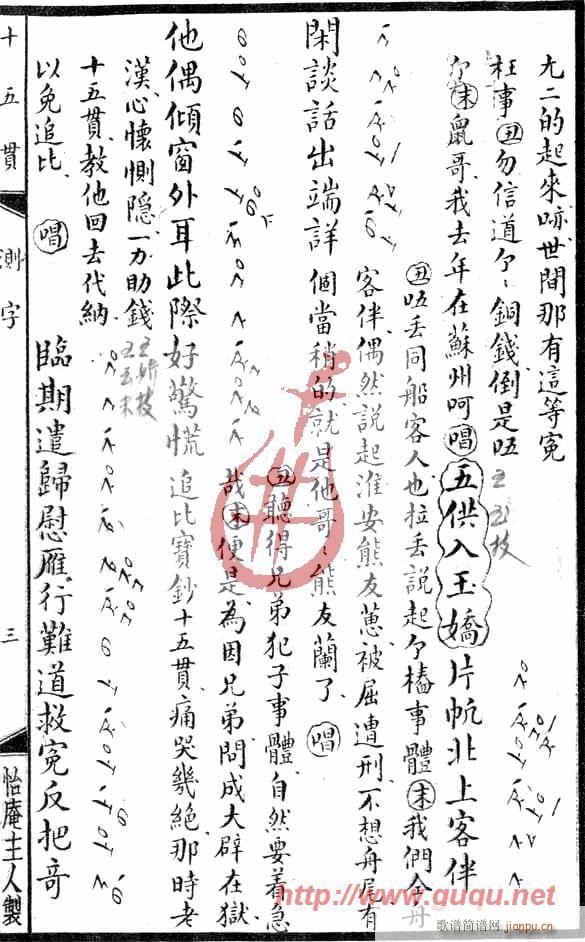 九二的起來㖿世間那有這等冤
枉事丑勿信道个、銅錢倒是唔
个末鼠哥我去年在蘇州呵唱五供入玉嬌片帆北上客伴
丑唔丢同船客人也拉丢說起个樁事體末我們合舟
客伴偶然說起淮安熊友蕙被屈遭刑不想舟尾有
閑談話出端詳個當稍的就是他哥、熊友蘭了唱
丑聽得兄弟犯子事體自然要着急
哉末便是為因兄弟問成大辟在獄
他偶傾窗外耳此際好驚慌追比寶鈔十五貫痛哭幾絕那時老
漢心懷惻隱一力助錢
十五貫教他回去代納
以免追比唱臨期遣歸慰雁行難道救冤反把奇
十五貫
測字
三
怡庵主人製
http://www.guqu.net
歌谱简谱网
jianpu.cn